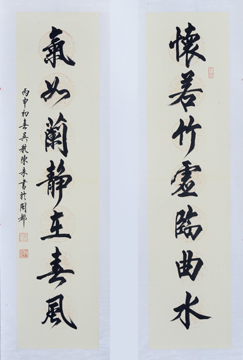 懷若竹虛臨曲水
氣如蘭靜在春風
丙申初春吳乾陳來書於國都